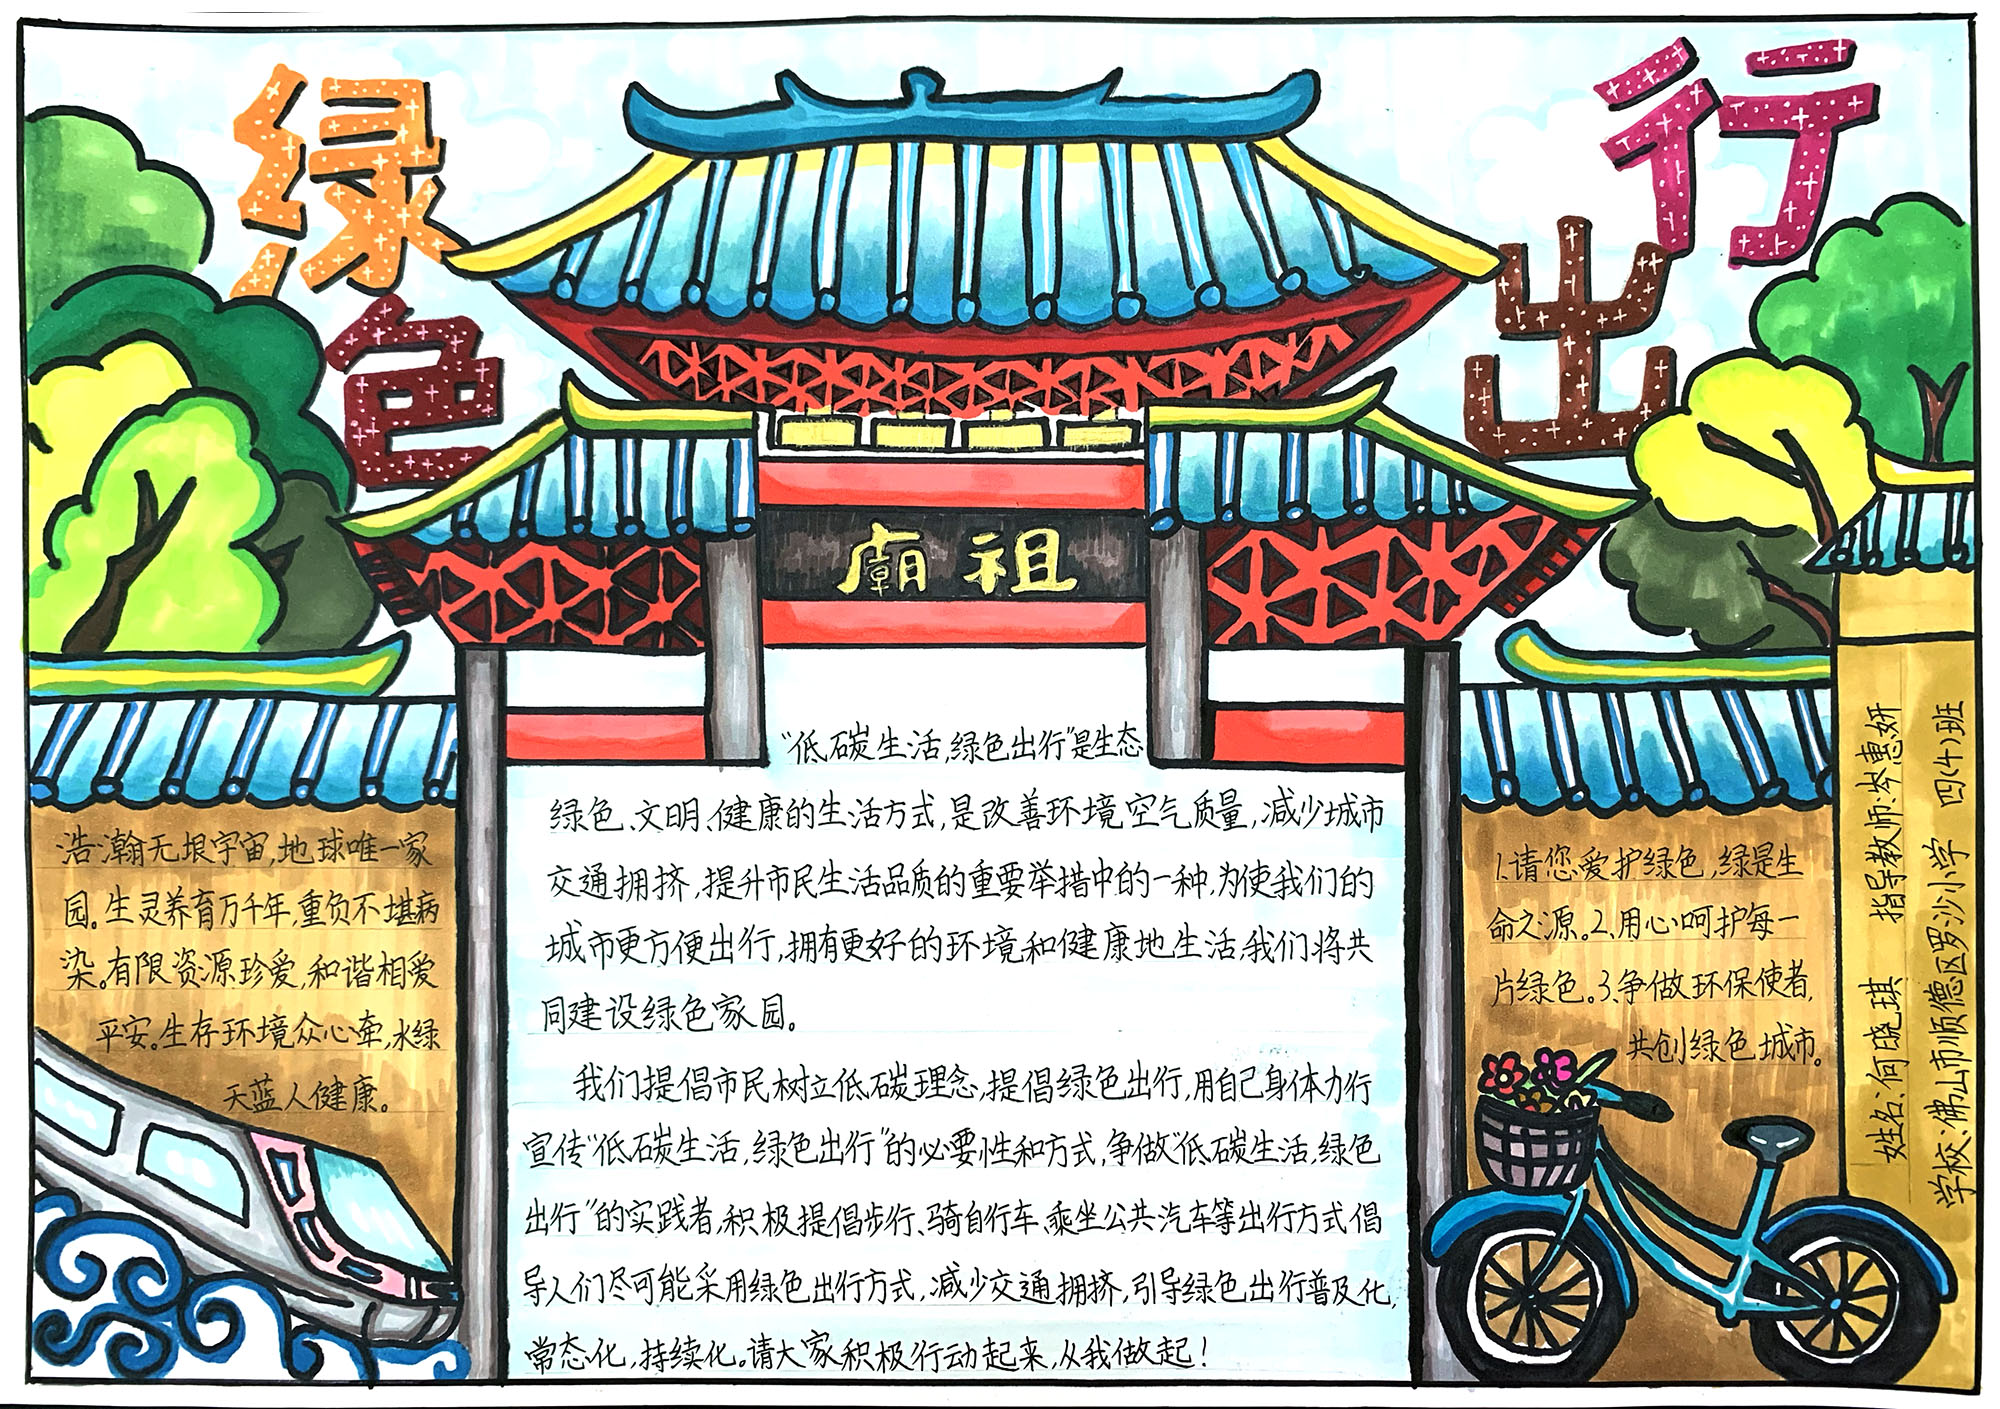 绿色
出行
廟祖
浩瀚无垠宇宙,地球唯一家
园。生灵养育万千年,重负不堪病
染。有限资源珍爱,和谐相爱
平安。生存环境众心牵,水绿
天蓝人健康。
“低碳生活,绿色出行”是生态
绿色、文明、健康的生活方式,是改善环境空气质量,减少城市
交通拥挤,提升市民生活品质的重要举措中的一种,为使我们的
城市更方便出行,拥有更好的环境和健康地生活,我们将共
同建设绿色家园。
我们提倡市民树立低碳理念,提倡绿色出行,用自己身体力行
宣传“低碳生活,绿色出行”的必要性和方式,争做“低碳生活,绿色
出行”的实践者,积极提倡步行、骑自行车、乘坐公共汽车等出行方式倡
导人们尽可能采用绿色出行方式,减少交通拥挤,引导绿色出行普及化,
常态化,持续化。请大家积极行动起来,从我做起!
1.请您爱护绿色,绿是生
命之源。2.用心呵护每一
片绿色。3.争做环保使者,
共创绿色城市。
姓名:何晓琪 指导教师:岑惠妍
学校:佛山市顺德区罗沙小学 四(4)班